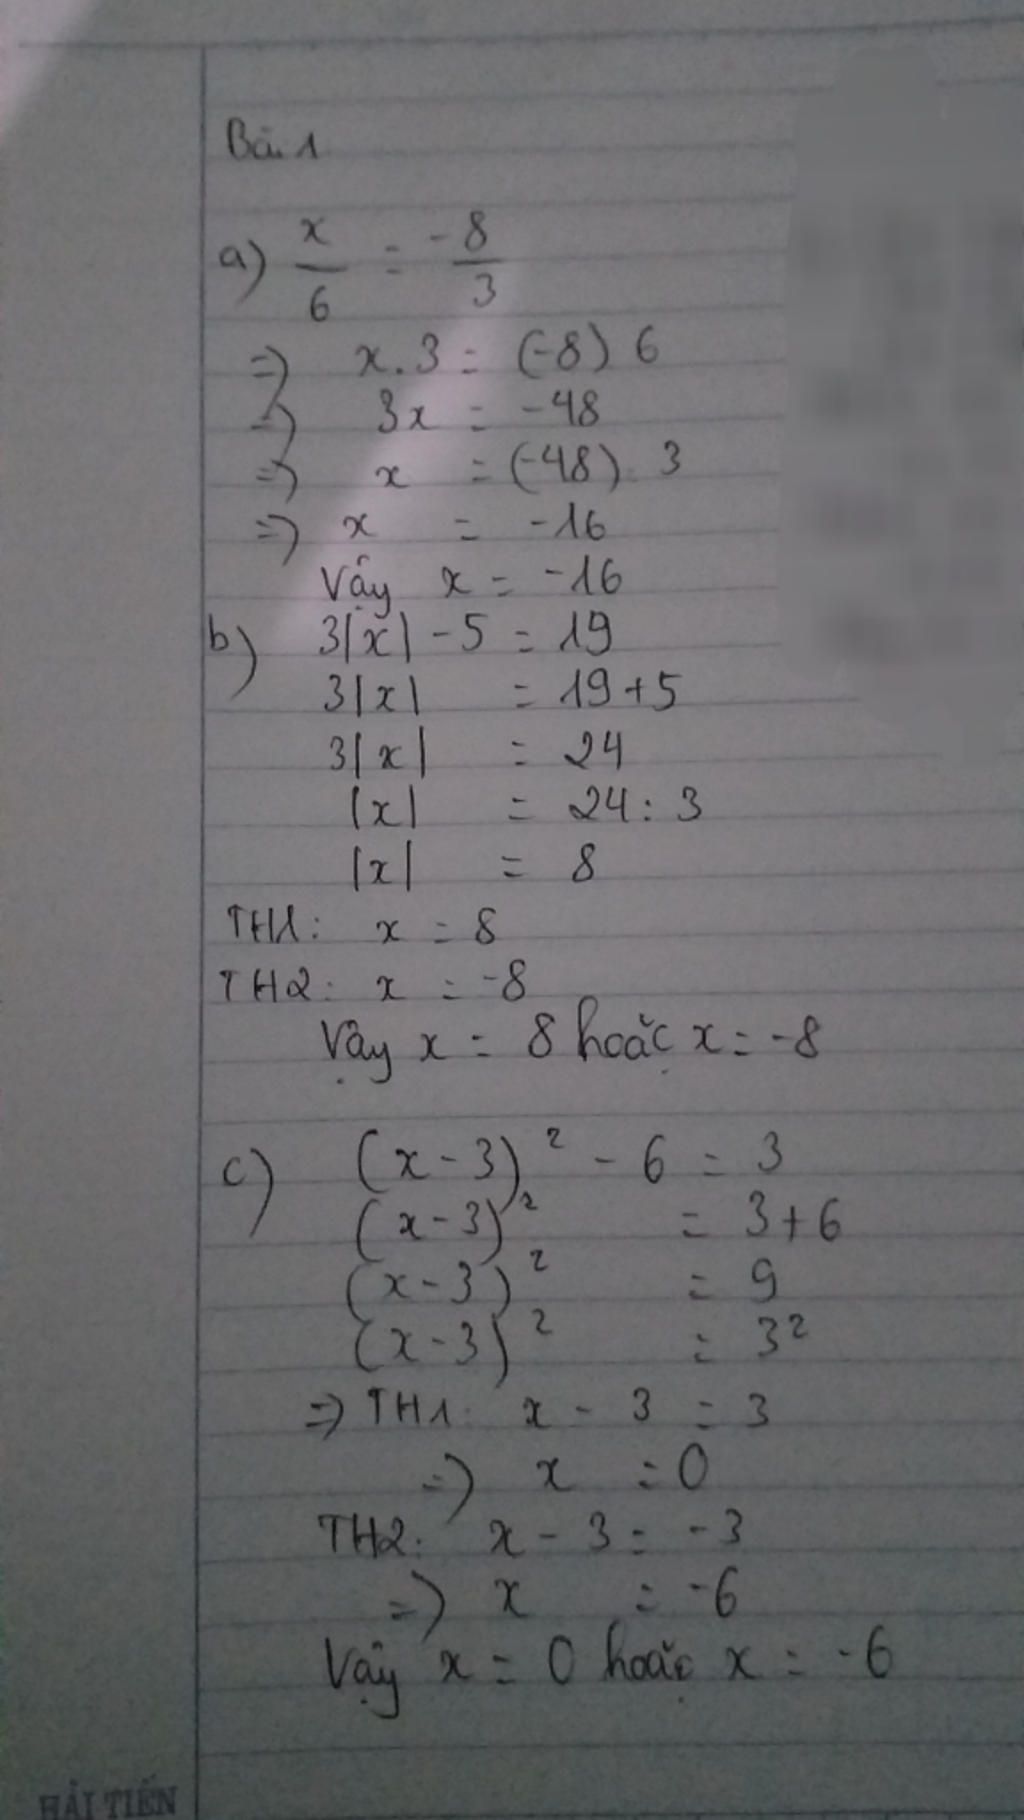 Bài 1
a) x/6 = -8/3
=> x.3 = (-8) 6
=> 3x = -48
=> x = (-48) 3
=> x = -16
Vậy x = -16
b) 3|x| - 5 = 19
3|x| = 19 + 5
3|x| = 24
|x| = 24 : 3
|x| = 8
TH1: x = 8
TH2: x = -8
Vậy x = 8 hoặc x = -8
c) (x - 3)² - 6 = 3
(x - 3)² = 3 + 6
(x - 3)² = 9
(x - 3)² = 3²
=> TH1: x - 3 = 3
=> x = 0
TH2: x - 3 = -3
=> x = -6
Vậy x = 0 hoặc x = -6
HẢI TIẾN